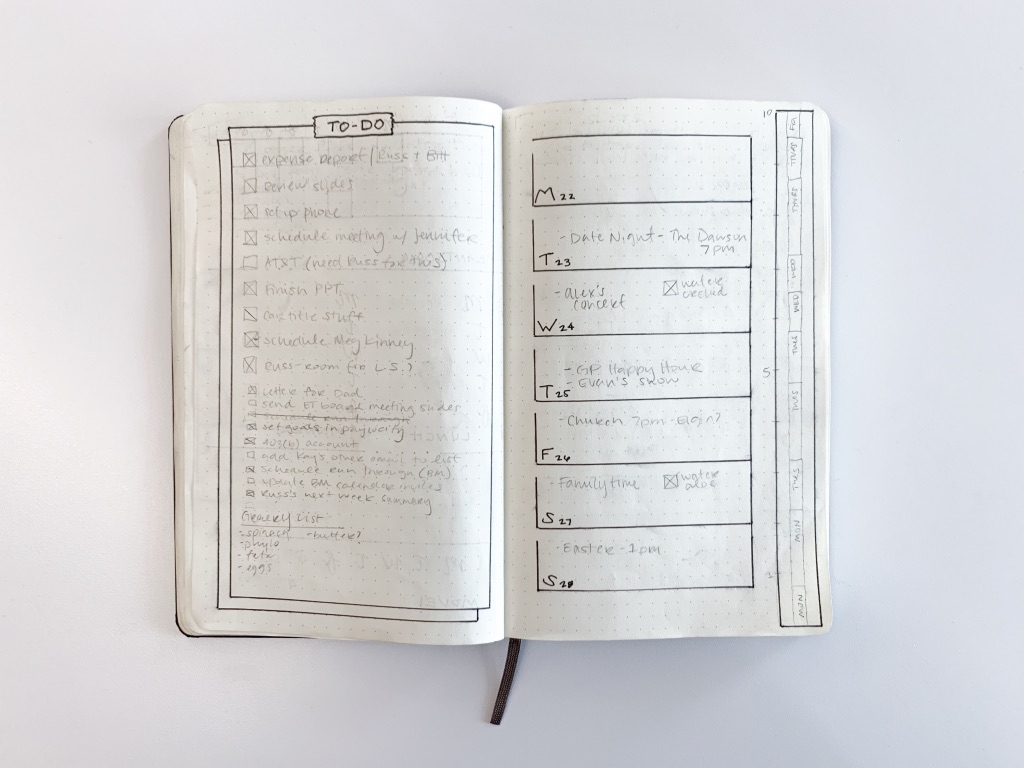 TO-DO
expense report / Russ + Bill
review slides
setup phone
schedule meeting w/ Jennifer
AT&T (need Russ for this)
Finish PPT
car title stuff
schedule Meg Kinney
Russ-room for L.S.?
Letter for Dad
send ET board meeting slides
set goals in paylocity
403(b) account
add Kay's other email to list
schedule run through (BM)
update BM calendar invites
Russ's next week summary
Grocery List
- spinach - butter?
- phyllo
- feta
- eggs
M 22
- Date Night - The Dawson
7pm
T 23
- Alex's
concert
water
W 24
- GP Happy Hour
- Evan's show
T 25
- Church 7pm - Elgin?
F 26
- Family time
water
S 27
- Easter - 1pm
S 28
10
5